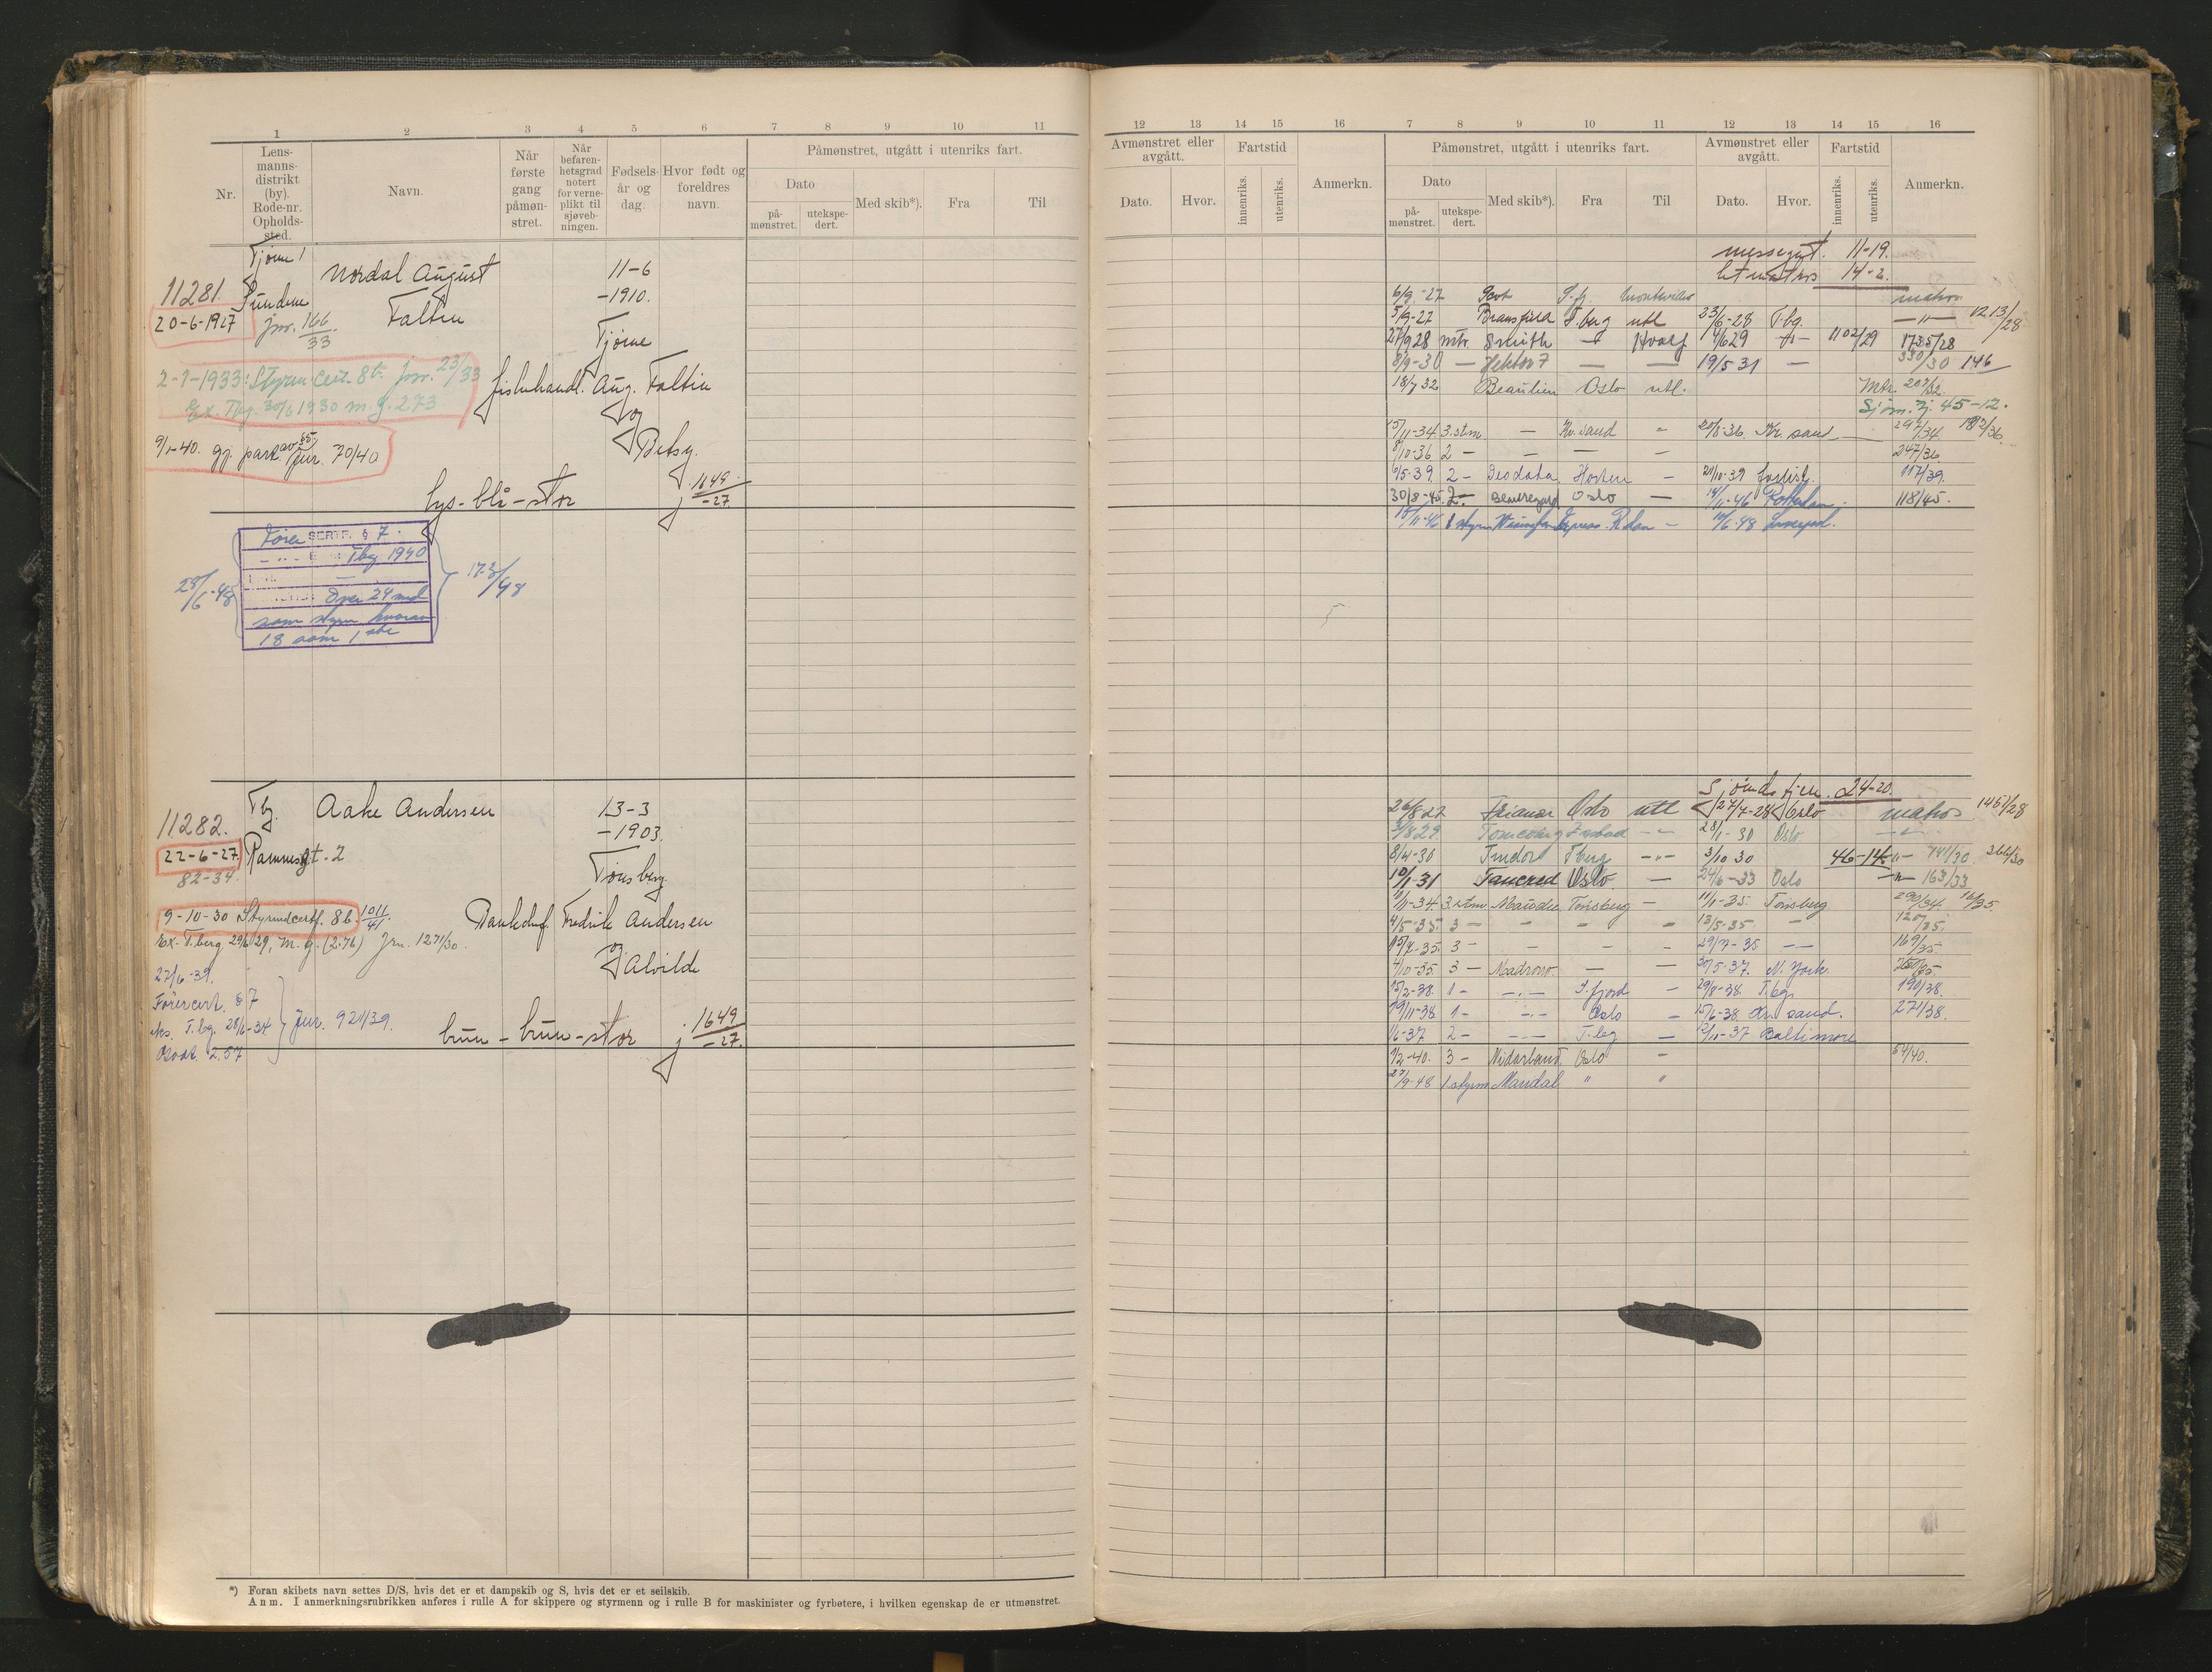 1 2 3 4 5 6 7 8 9 10 11
Nr.
Lens-
manns-
distrikt
(by).
Rode-nr.
Opholds-
sted.
Navn.
Når
første
gang
påmøn-
stret.
Når
befaren-
hetsgrad
notert
for verne-
plikt til
sjøveb-
ningen.
Fødsels-
år og
dag.
Hvor født og
foreldres
navn.
Påmønstret, utgått i utenriks fart.
Dato
på-
mønstret.
utekspe-
dert.
Med skib*).
Fra
Til
Tjøme 1
11281. Nordal August 11-6
Sundene -1910.
20-6-1927 jnr. 166/33 Faltin
Tjøme
2-1-1933: Styrm. cert. 8b jnr. 23/33
Ex. Tbg. 30/6 1930 m.g. 273
fiskehandl. Aug. Faltin
og
Betsy.
9/1-40. gj. park jnr. 70/40
lys - blå - stor j. 1649/-27
Fører SERTF. § 7.
Tbg 1940
28/6-48
over 24 md
173/48
som styrm hvorav
18 som 1ste
11282. Tbg. Aake Andersen 13-3
-1903.
22-6-27 Rammegt. 2
82-34.
Tønsberg
9-10-30 Styrmdcertf. 8b. 1011/41
Fredrik Andersen
Ex. T.berg 29/6 29, m.g. (2.76) Jrn. 1271/30.
og
Alvilde
27/6-39.
Førercert. § 7
eks. T.bg. 28/6-34 jnr. 921/39.
2.57
brun - brun - stor j 1649/-27.
*) Foran skibets navn settes D/S, hvis det er et dampskib og S, hvis det er et seilskib.
Anm. I anmerkningsrubrikken anføres i rulle A for skippere og styrmenn og i rulle B for maskinister og fyrbøtere, i hvilken egenskap de er utmønstret.
12 13 14 15 16 7 8 9 10 11 12 13 14 15 16
Avmønstret eller
avgått.
Dato.
Hvor.
Fartstid
innenriks.
utenriks.
Anmerkn.
Påmønstret, utgått i utenriks fart.
Dato
på-
mønstret.
utekspe-
dert.
Med skib*).
Fra
Til
Avmønstret eller
avgått.
Dato.
Hvor.
Fartstid
innenriks.
utenriks.
Anmerkn.
messegut. 11-19.
letmatros 14-2.
6/9-27 S.fj. matros
5/9-27 Bransfield T.berg utl 23/6-28 T.bg. -"- 1213/28
27/9 28 mtr. Smith - Hvalf 1/6 29 1102/29 1735/28
8/9-30 - Hektor 7 - - 19/5 31 - 330/30 146
18/7 32 Beaulieu Oslo utl. Mtr. 207/32
Sjøm. 45-12.
15/11-34 3. stm. - Kr.sand - 20/8-36. Kr. sand 297/34 192/36.
8/10-36 2 - - - - 247/36.
6/5-39. 2 - Deodata Horten - 21/10-39 forlist. 117/39.
30/8-45. 2 - Beauregard Oslo - 14/11-46 Rotterdam 118/45.
15/11-46 1 styrm Washington Express. R.dam - 11/6-48 Liverpool.
Sjømdstjen. 24-20.
26/8 27 Trianon Oslo utl 27/7-28 Oslo matros 1451/28
3/8 29 28/1-30 Oslo
8/4-30 Tudor T.berg -"- 3/10 30 46-14. 741/30 366/30
10/1-31 Tancred Oslo - 24/6-33 Oslo -"- 163/33
11/11-34. 3. stm. Maudie Tønsberg - 11/1-35. Tønsberg 290/34. 16/35.
4/5-35. 3 - - - - 13/5-35. - 120/35.
15/7-35 3 - - - - 29/7-35 - 169/35
4/10-35 3 - Madrono - - 30/5-37. N. York. 250/35.
15/2-38. 1 - -.- S.fjord - 29/8-38. T.bg. 190/38.
19/11-38. 1 - -.- Oslo - 15/6-38 Kr.sand. 271/38.
1/6-37 2 - -.- T.bg - 12/11-37 Baltimore
1/2-40. 3 - Nidarland Oslo - 54/40.
27/9-48 1 styrm Mandal " "